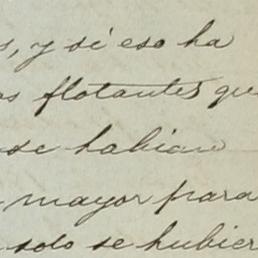 s, y si eso ha
os flotantes que
se habian
mayor para
solo se hubier